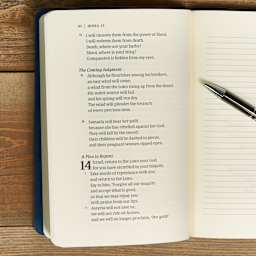 HOSEA 13
I will ransom them from the power of Sheol.
I will redeem them from death.
Death, where are your barbs?
Sheol, where is your sting?
Compassion is hidden from my eyes.
The Coming Judgment
Although he flourishes among his brothers,
an east wind will come,
a wind from the LORD rising up from the desert.
His water source will fail,
and his spring will run dry.
The wind will plunder the treasury
of every precious item.
Samaria will bear her guilt
because she has rebelled against her God.
They will fall by the sword;
their children will be dashed to pieces,
and their pregnant women ripped open.
A Plea to Repent
14 Israel, return to the LORD your God,
for you have stumbled in your iniquity.
Take words of repentance with you
and return to the LORD.
Say to him, "Forgive all our iniquity
and accept what is good,
so that we may repay you
with praise from our lips.
Assyria will not save us,
we will not ride on horses,
and we will no longer proclaim, 'Our gods!'